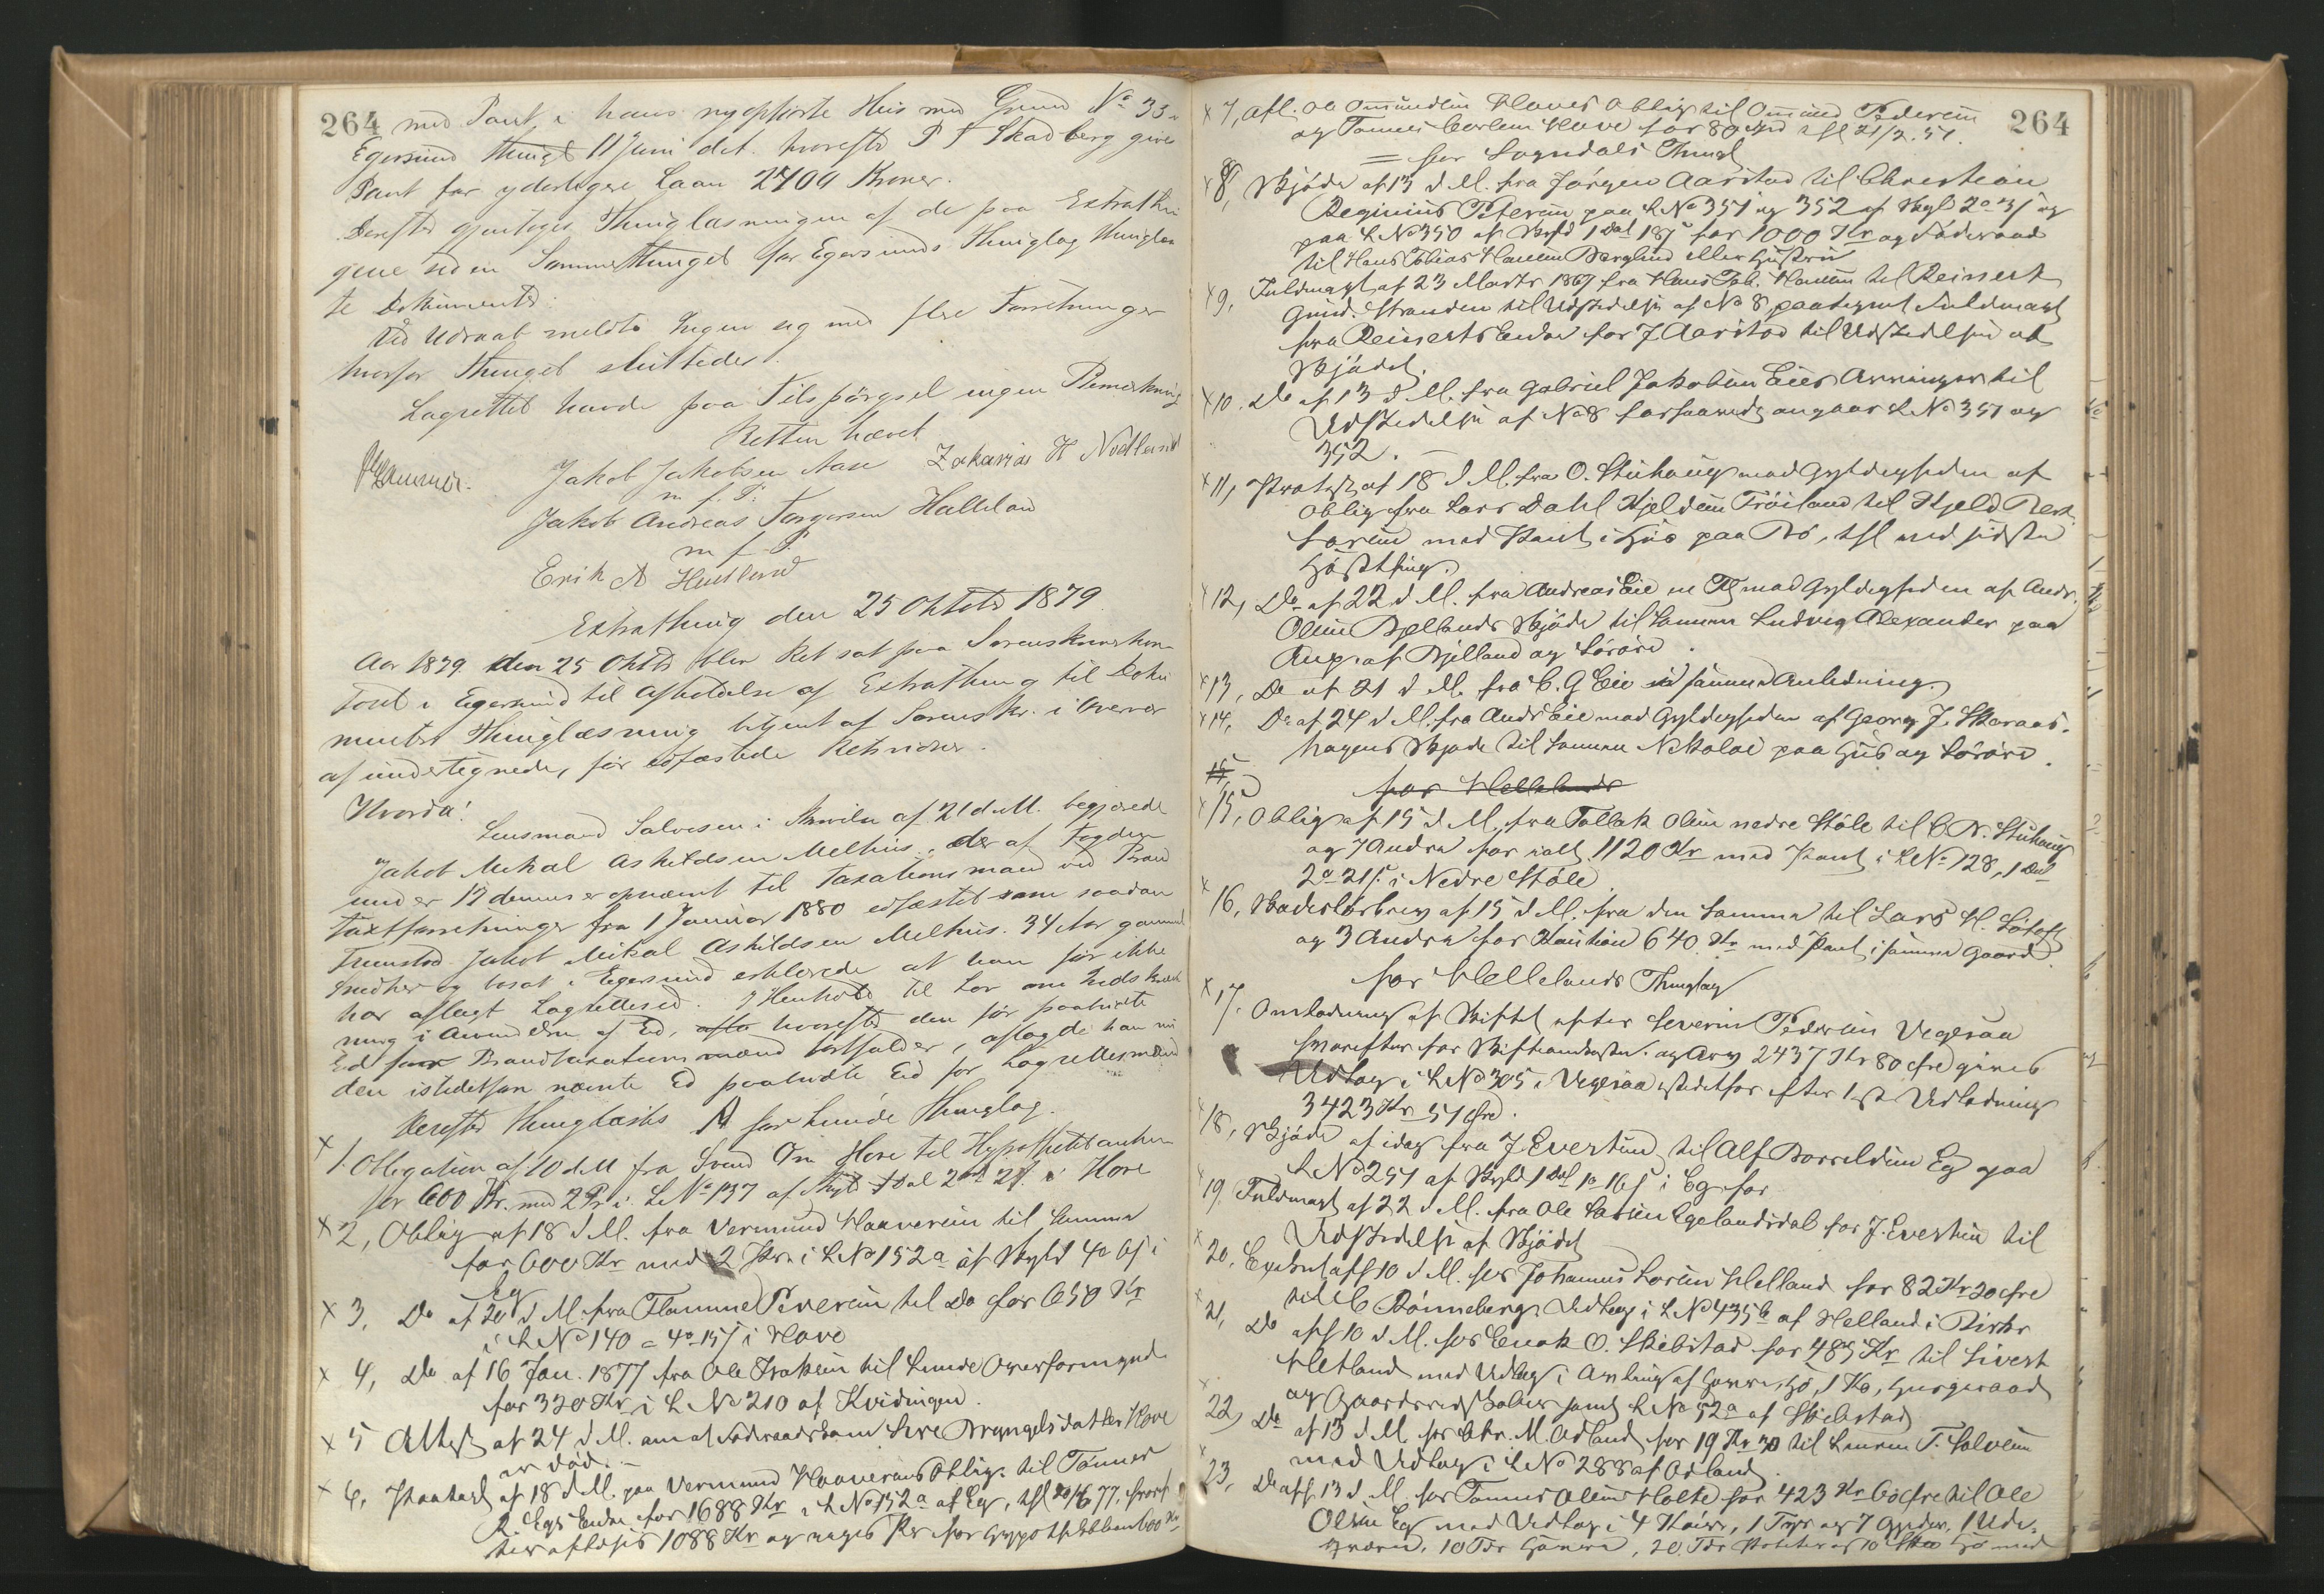 264 med Pant i hans nyopførte Hus med Grund No 33
Egersund thingl 11 Juni det. hvorefter P T Skadberg giver
Pant for yderligere Laan 2700 Kroner.
Derefter gjentoges Thinglæsningen af de paa Extrathin
gene siden Sommerthinget for Egersunds Thinglag thinglæs
te Dokumenter.
Ved Udraab meldte Ingen sig med flere Forretninger
hvorfor Thinget sluttedes.
Lagrettet havde paa Tilspørgsel ingen Bemærkning
Retten hævet
Jakob Jakobsen Aase Zakarias H Nodland
m. f. P.
Jakob Andreas Torgersen Halleland
m f P
Erik A
Extrathing den 25 Oktober 1879
Aar 1879 den 25 Oktbr blev Ret sat paa Sorenskriverkon
toret i Egersund til Afholdelse af Extrathing til Doku
menters Thinglæsning betjent af Sorenskr. i Overvær
af undertegnede, før edfæstede Retsvidner.
Hvorda!
Lensmand Salvesen i Skrivelse af 21 d. M. begjærede
Jakob Mikal Askildsen Melhus, der af Fogden
under 17 dennes er opnævnt til Taxationsmand ved Brand
taxtforretninger fra 1 Januar 1880 edfæstet som saadan
Fremstod Jakob Mikal Askildsen Melhus. 34 Aar gammel
Snedker og bosat i Egersund erklærede at han før ikke
har aflagt Lagrettesed. I Henhold til Lov om Indskrænk
ning i Anvendelse af Ed, hvorefter den før paabudte
Ed for Brandtaxationsmænd bortfalder, aflagde han nu
den istedetfor nævnte Ed paabudte Ed for Lagrettesmænd
Derefter thinglæstes A for Lunde Thinglag.
x 1. Obligation af 10 d M fra Svend Hove til Hypothekbanken
for 600 Kr. med 2 Pr i L No 137 af Skyld 2 21 i Hove
x 2, Oblig af 18 d M. fra Vermund Haaversen til Samme
for 600 Kr med 2 Pr. i L No 152a af Skyld 4o 6s i
Eg
x 3. Do af 20 d M. fra Flamme Peversen til Do for 650 Kr
i L No 140 = 4o 15s i Hove
x 4, Do af 16 Jan. 1877 fra Ole Isaksen til Lunde Overformynd
for 320 Kr i L No 210 af Kvidingen.
x 5 Attest af 24 d M. om at Føderaadskone Sire Bryngelsdatter Hove
er død. -
x 6, Paategn af 18 d M. paa Vermund Haaversens Oblig. til Tønnes
R. Egs Enke for 1688 Kr i L No 152a af Eg, thl 20/6 77, hvorf
der afløses 1088 Kr og viges Pr for Hypothekbank 600 Kr
264
x 7, Afl. af Ommundsen Hoves Oblig til Ommund Pedersen
og Tønnes Carlsen Hove for 80 Spd thl 21/2. 51.
= for Sogndals Thingl
x 8, Skjøde af 13 d M. fra Jørgen Aarstad til Christian
Reginius Petersen paa L No 351 og 352 af Skyld 2o 3s og
paa L No 350 af Skyld 1 Dal 18s for 1000 Kr og Føderaad
til Hans Tobias Hansen Berglund eller Hustru
x 9, Fuldmagt af 23 Marts 1869 fra Hans Tob. Hansen til Reinert
Gund. Stranden til Udstedelse af No 8 paategnet Fuldmagt
fra Reinerts Enke for J Aarstad til Udstedelse af
Skjødet.
x 10. Do af 13 d M. fra Gabriel Jakobsen Eies Arvinger til
Udstedelse af No 8 forsaavidt angaar L No 351 og
352. -
x 11, Protest af 18 d M. fra O. Stuhaug mod Gyldigheden af
Oblig fra Lars Dahl Kjeldsen Frøiland til Kjeld
Larsen med Pant i Hus paa Rø, thl ved sidste
Høstthing.
x 12, Do af 22 d M. fra Andreas Eie mod Gyldigheden af Andr.
Olsen Bjellands Skjøde til Sønnen Ludvig Alexander paa
Rug. af Bjelland og Løsøre.
x 13, Do af 21 d M. fra C. G Eie i samme Anledning.
x 14, Do af 24 d M. fra Andr Eie mod Gyldigheden af Georg J. Skaraas-
hagens Skjøde til Sønnen Nikolai paa Hus og Løsøre.
15,
for Hellelands
x 15, Oblig af 15 d M. fra Tollak Olsen nedre Støle til C R. Stuhaug
og 7 Andre for ialt 1120 Kr med Pant i L No 128, 1 Dal
2o 21s. i Nedre Støle
x 16, Skadesløsbrev af 15 d M. fra den Samme til Lars H. Løtoft
og 3 Andre for Kaution 640 Kr med Pant i samme Gaard.
for Hellelands Thinglag
x 17. Omlodning af Skiftet efter Severin Pedersen Vegeraa
hvorefter for Skifteomkostn. og Arv 2437 Kr 80 Øre gives
Udlæg i L No 305 Vegeraa istedetfor efter 1ste Udlodning
3423 Kr 51 Øre.
18, Skjøde af idag fra J Evertsen til Alf Bosseldsen Eg paa
L No 251 af Skyld 1 Dal 1o 16s i Eg for
19 Fuldmagt af 22 d M. fra Ole Larsen Egelandsdal for J. Evertsen til
x Udstedelse af Skjødet
20, Exekut aff 10 d M. hos Johannes Larsen Helland for 82 Kr 20 Øre
x til C Rønneberg Udlæg i L No 435b af Helland i Birkr
21, Do aff 10 d M. hos Enok O. Skibstad for 485 Kr til Sivert
Hetland med Udlæg i Avling af Havre, Hø, 1 Ko, Husgeraad
x og Gaardsredskaber samt L No 52a af Skibstad
22, Do af 13 d M. hos Chr. M. Odland for 19 Kr 30 til Lensm T. Salvesen
x med Udlæg i L No 288 af Odland.
23, Do aff. 13 d M. hos Tønnes Olsens Holte for 423 Kr 60 Øre til Ole
Olsen Eg med Udlæg i 4 Køer, 1 Tyr og 7 Gjeder, 1 Ude-
kværn, 10 Tdr Havre, 20 Tdr Poteter og 10 Hø med